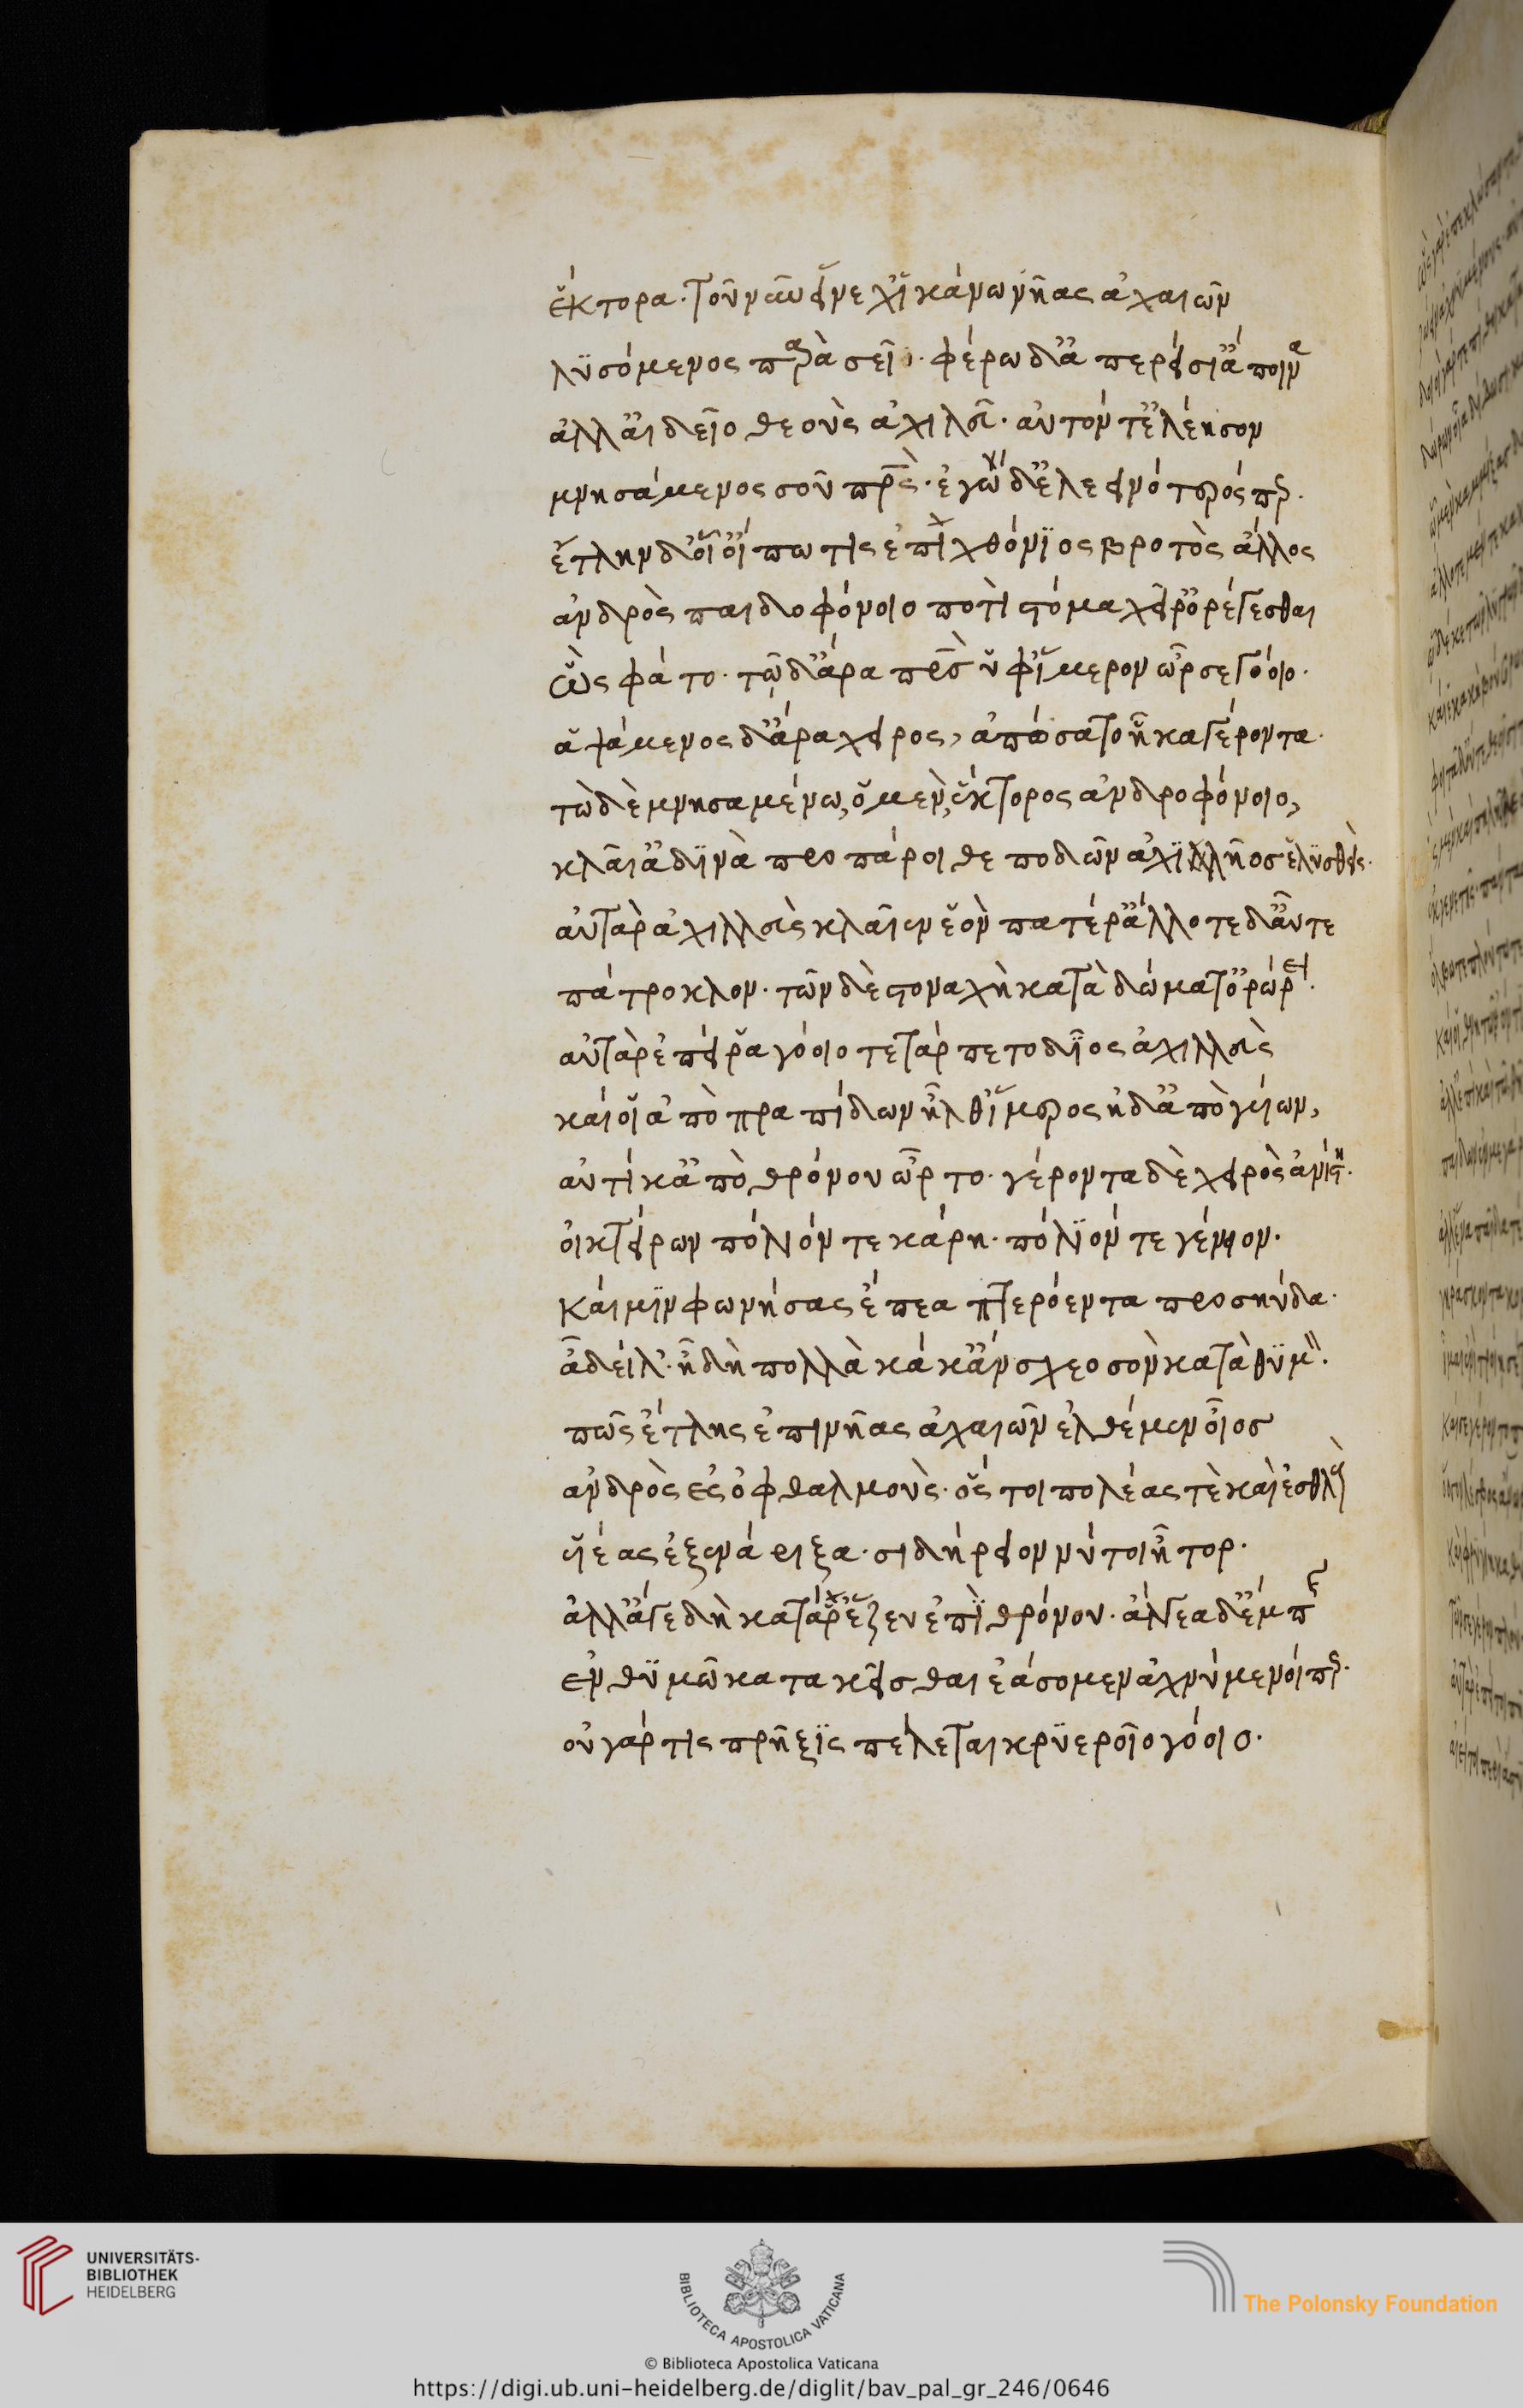 ἕκτορα. τοῦ νῦν εἵνεχ' ἱκάνω νῆας ἀχαιῶν
λϋσόμενος παρὰ σεῖο. φέρω δ' ἀπερείσι' ἄποινα
ἀλλ' αἰδεῖο θεοὺς ἀχιλεῦ. αὐτόν τ' ἐλέησον
μνησάμενος σοῦ πατρὸς. ἐγὼ δ' ἐλεεινότερός περ.
ἔτλην δ' οἷ' οὔπω τις ἐπιχθόνϊος βροτὸς ἄλλος
ἀνδρὸς παιδοφόνοιο ποτὶ στόμα χεῖρ' ὀρέγεσθαι
ὣς φάτο. τῶ δ' ἄρα πατρὸς ὑφ' ἵμερον ὦρσε γόοιο.
ἁψάμενος δ' ἄρα χειρος, ἀπώσατο ἦκα γέροντα.
τὼ δὲ μνησαμένω, ὁ μὲν, ἕκτορος ἀνδροφόνοιο,
κλαῖ' ἁδϊνὰ προπάροιθε ποδῶν ἀχϊλλῆοσ ἐλϋσθεὶς.
αὐτὰρ ἀχιλλεὺς κλαῖεν ἑὸν πατέρ' ἄλλοτε δ' αὖτε
πάτροκλον. τῶν δὲ στοναχὴ κατὰ δώματ' ὀρώρει.
αὐτὰρ ἐπεί ῥα γόοιο τετάρπετο δῖος ἀχιλλεὺς
καί οἱ ἀπὸ πραπίδων ἦλθ' ἵμερος ἠδ' ἀπὸ γυίων,
αὐτίκ' ἀπὸ θρόνου ὦρτο. γέροντα δὲ χειρὸς ἀνίστη.
οἰκτείρων πολιόν τε κάρη. πολϊόν τε γένειον.
καί μϊν φωνήσας ἔπεα πτερόεντα προσηύδα.
ἆ δείλ'. ἦ δὴ πολλὰ κάκ' ἄνσχεο σὸν κατὰ θϋμόν.
πῶς ἔτλης ἐπι νῆας ἀχαιῶν ἐλθέμεν οἶοσ
ἀνδρὸς ἐς ὀφθαλμοὺς. ὅς τοι πολέας τὲ καὶ ἐσθλοὺς
υἱέας ἐξενάριξα. σιδήρειον νύ τοι ἦτορ.
ἀλλ' ἄγε δὴ κατάρ' ἕζευ ἐπὶ θρόνου. ἄλγεα δ' ἔμπης
ἐν θϋμῶ κατακεῖσθαι ἐάσομεν ἀχνύμενοί περ.
οὐ γάρ τις πρῆξϊς πέλεται κρϋεροῖο γόοιο.
UNIVERSITÄTS-
BIBLIOTHEK
HEIDELBERG
BIBLIOTECA APOSTOLICA VATICANA
The Polonsky Foundation
© Biblioteca Apostolica Vaticana
https://digi.ub.uni-heidelberg.de/diglit/bav_pal_gr_246/0646